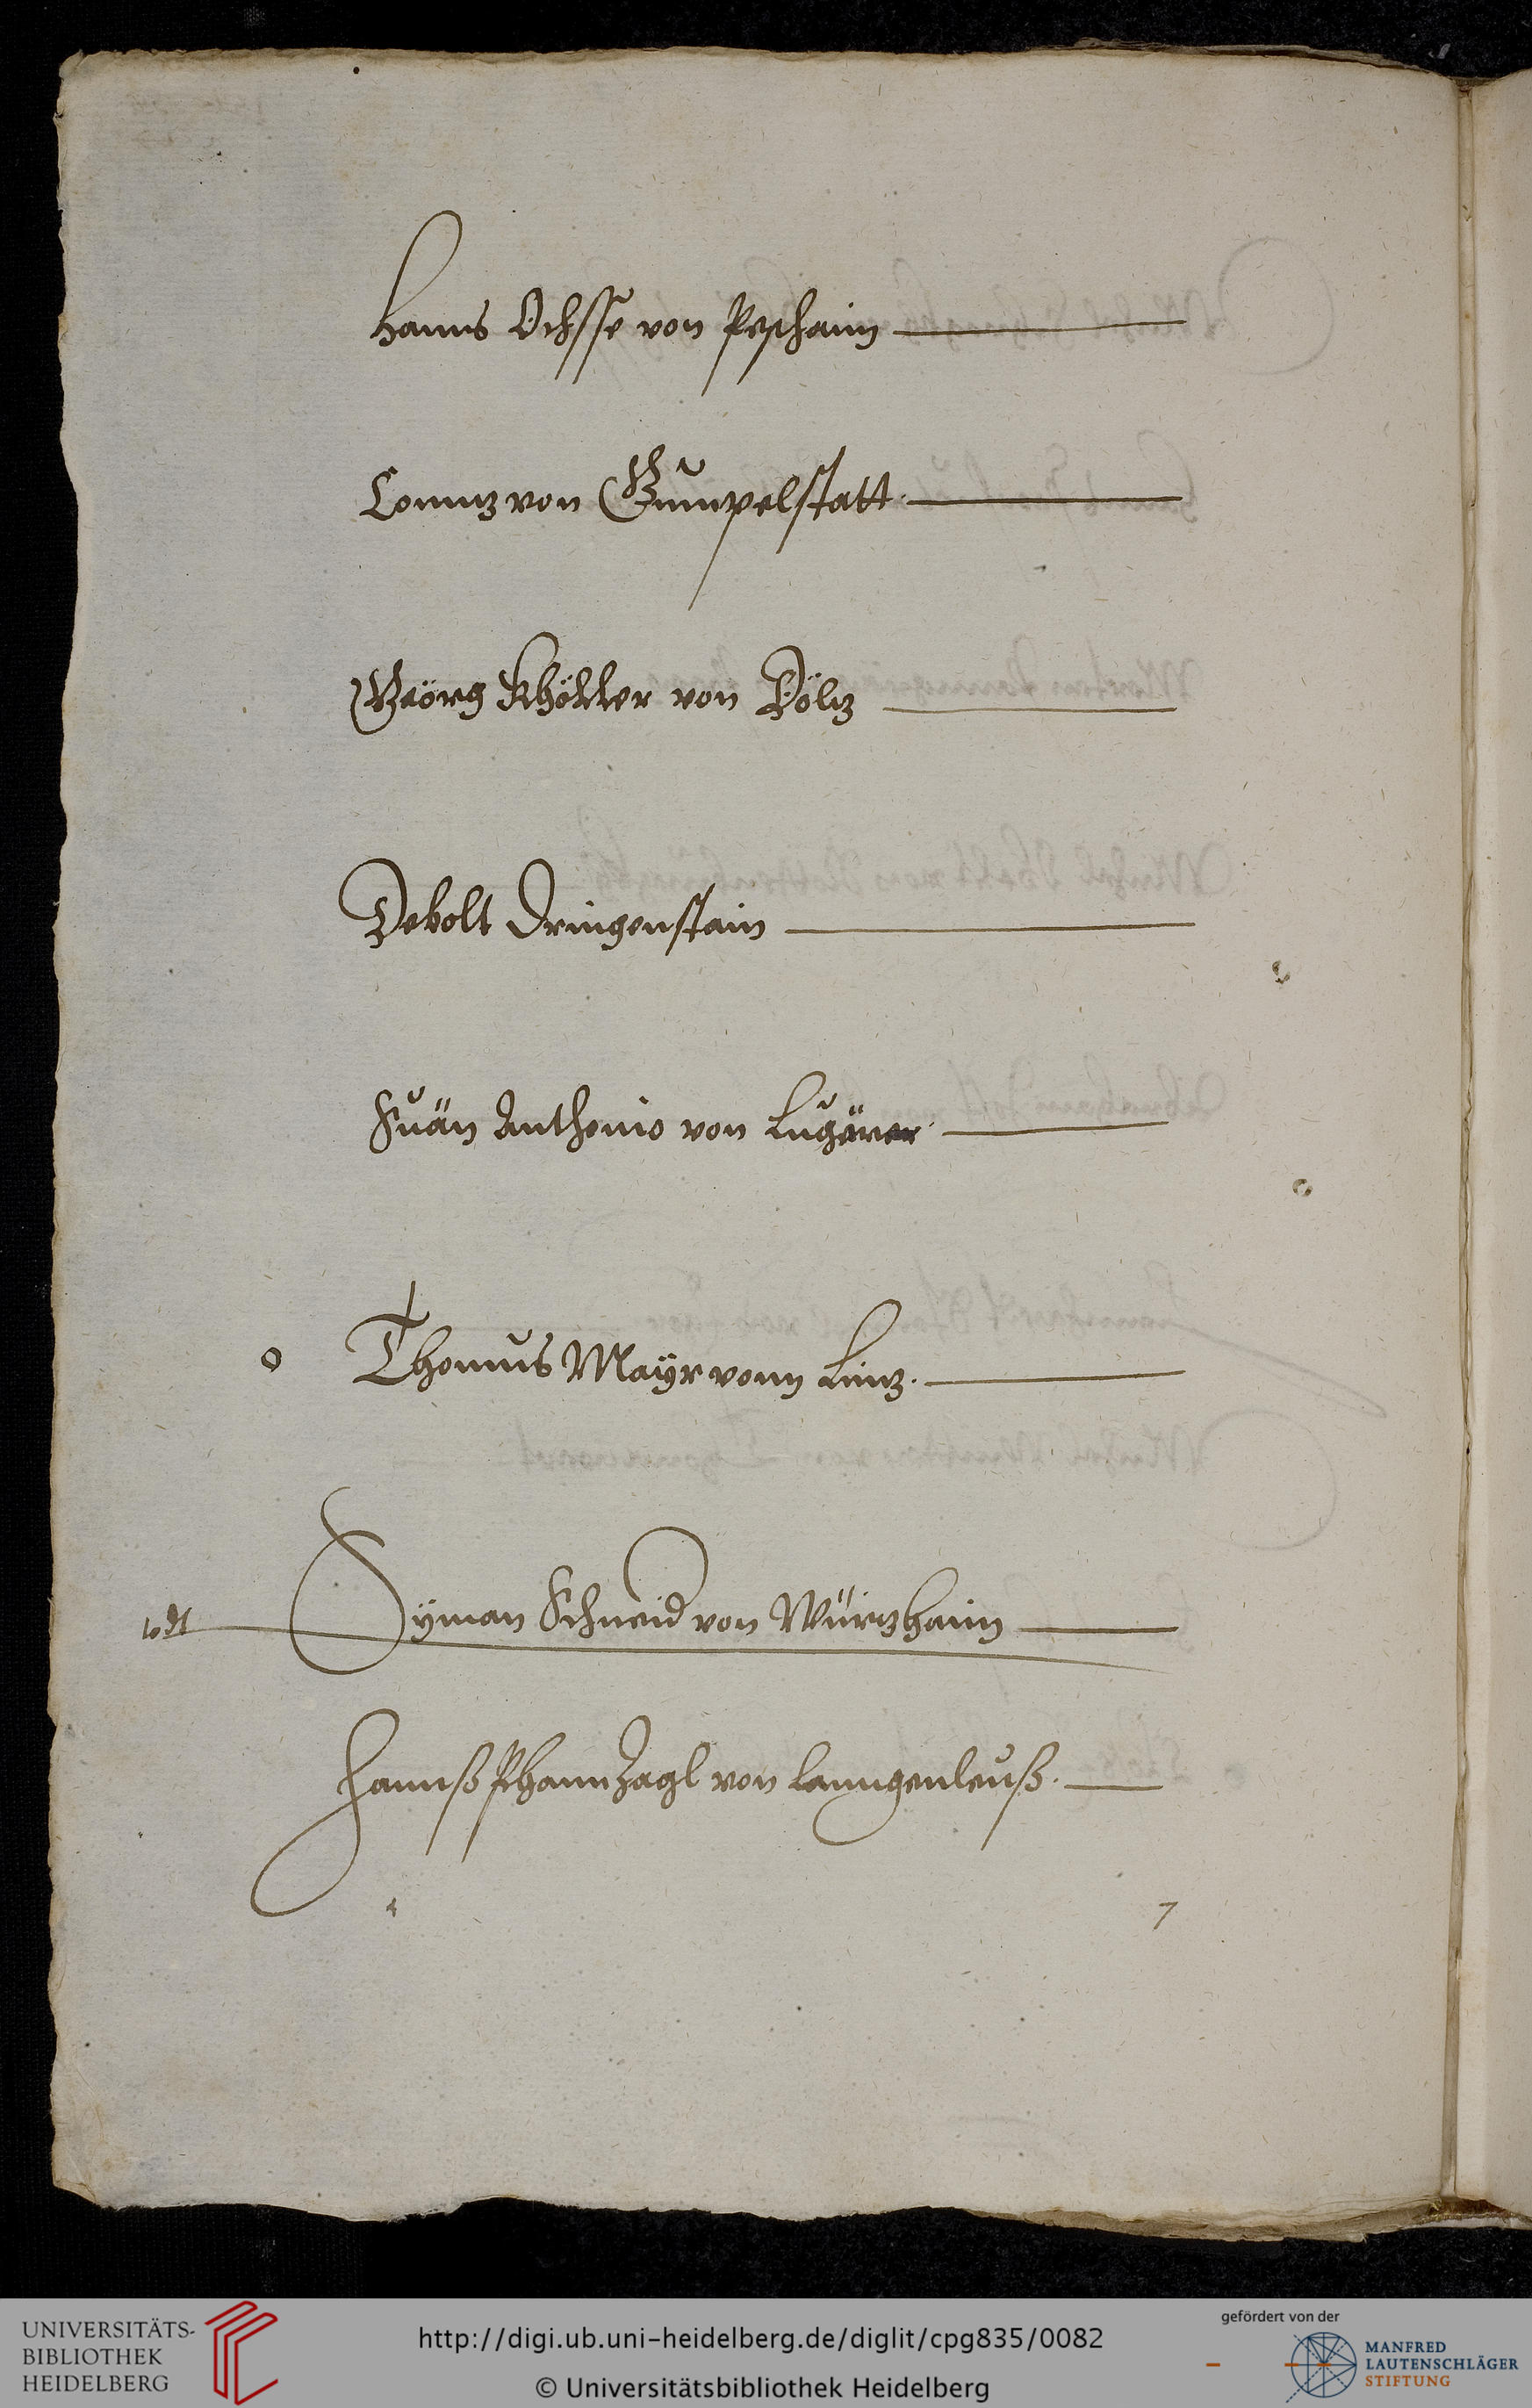 Hanns Ochsse von Pepshaim
Connz von Gumpelstatt.
Geörg Khöller von Dölz
Debolt Dringenstain
Suän Anthonio von Lugärer
o Thomus Mayr vonn Linz.
todt Syman Schneid von Würzhaim
Hannß Phannzagl von Lanngenleuß.
7
UNIVERSITÄTS-
BIBLIOTHEK
HEIDELBERG
http://digi.ub.uni-heidelberg.de/diglit/cpg835/0082
© Universitätsbibliothek Heidelberg
gefördert von der
MANFRED
LAUTENSCHLÄGER
STIFTUNG